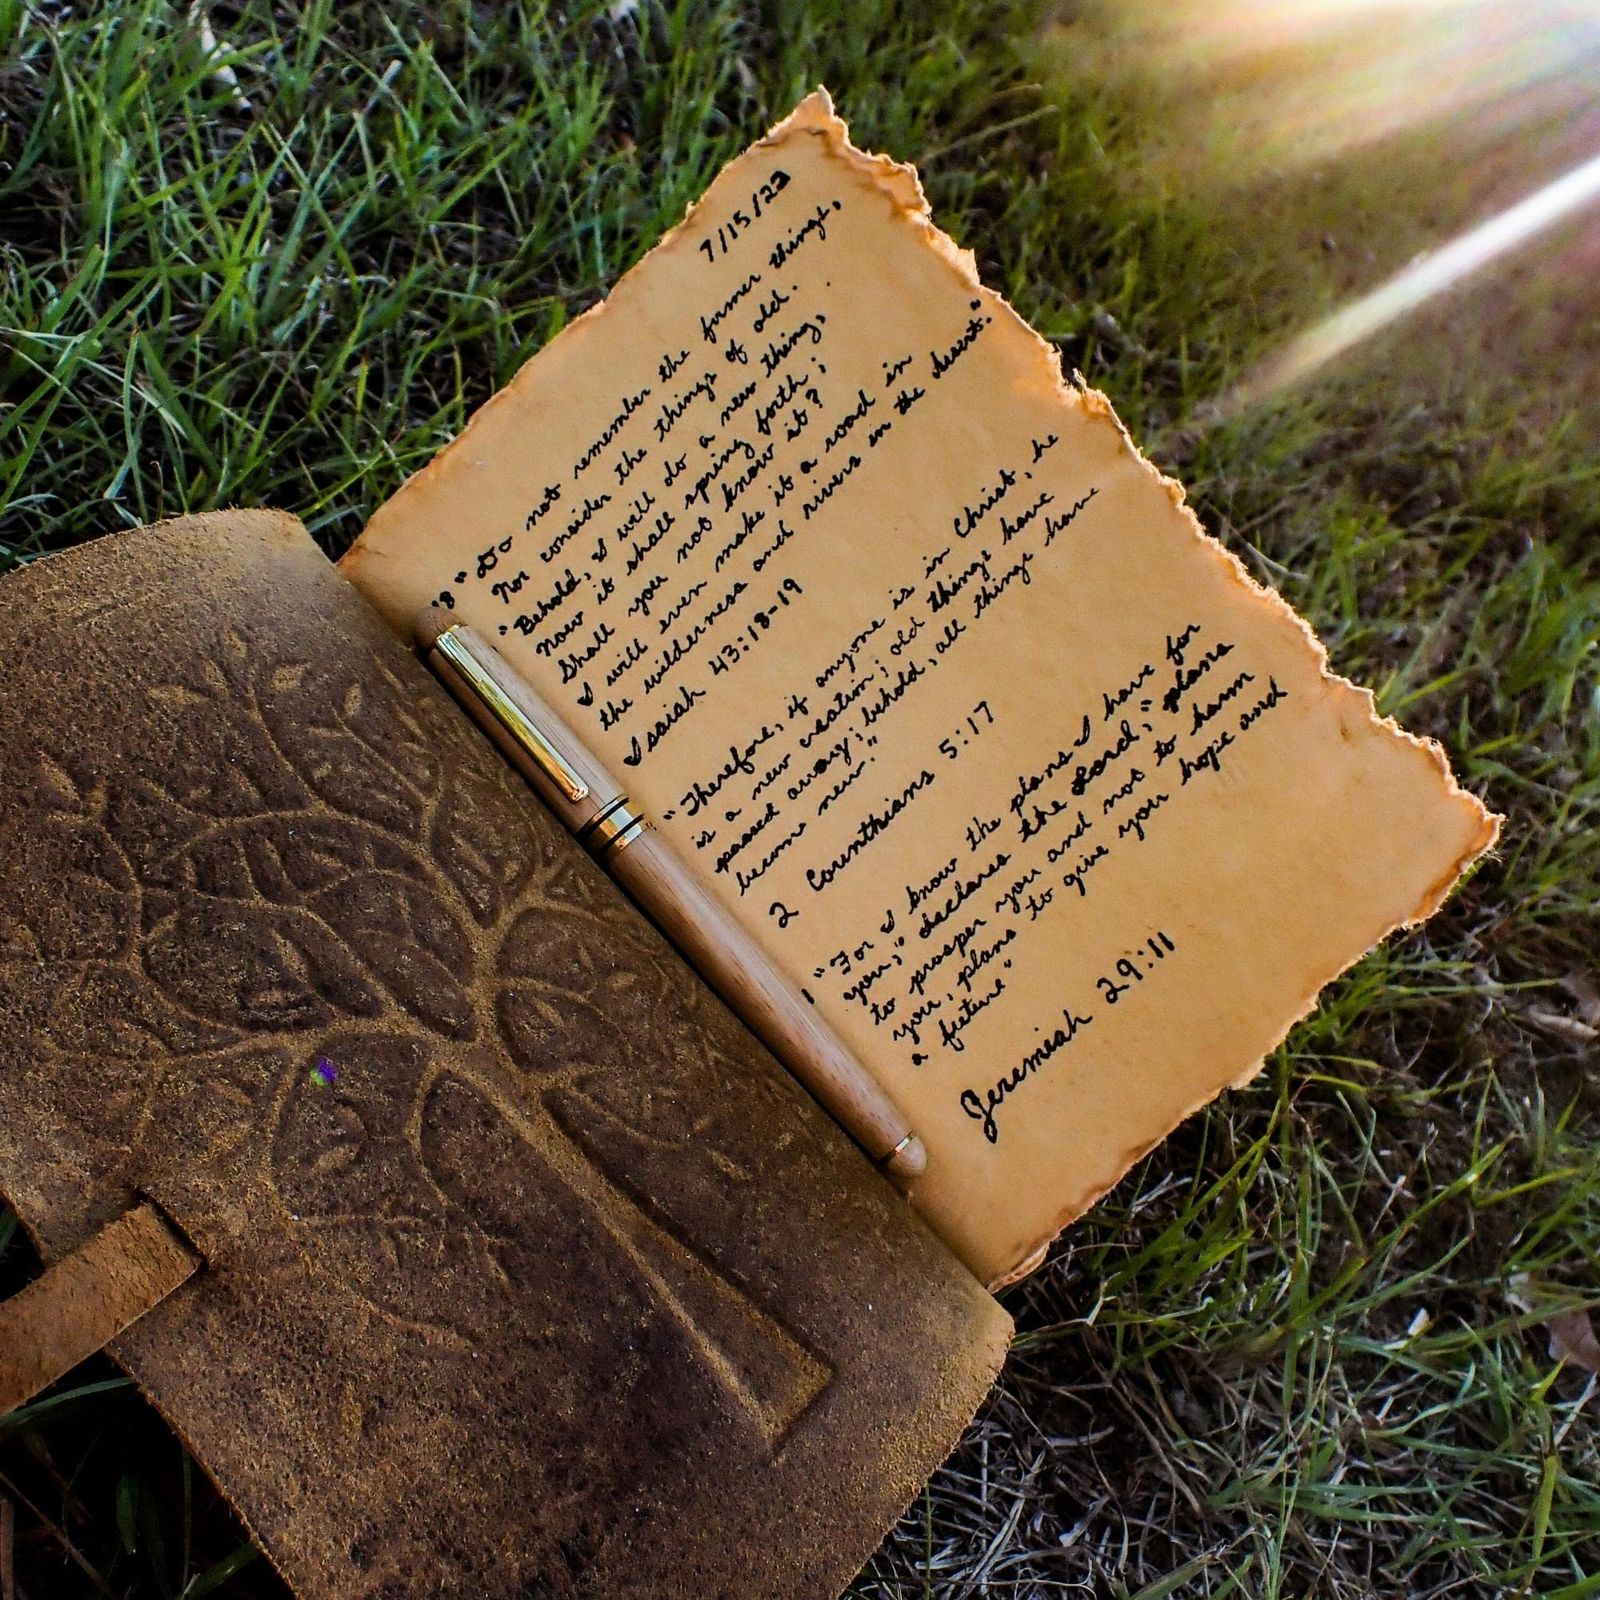 7/15/22
18 "Do not remember the former things,
Nor consider the things of old.
"Behold, I will do a new thing,
Now it shall spring forth;
Shall you not know it?
I will even make it a road in
the wilderness and rivers in the desert."
Isaiah 43:18-19
"Therefore, if anyone is in Christ, he
is a new creation; old things have
passed away; behold, all things have
become new."
2 Corinthians 5:17
11 "For I know the plans I have for
you," declares the Lord, "plans
to prosper you and not to harm
you, plans to give you hope and
a future"
Jeremiah 29:11